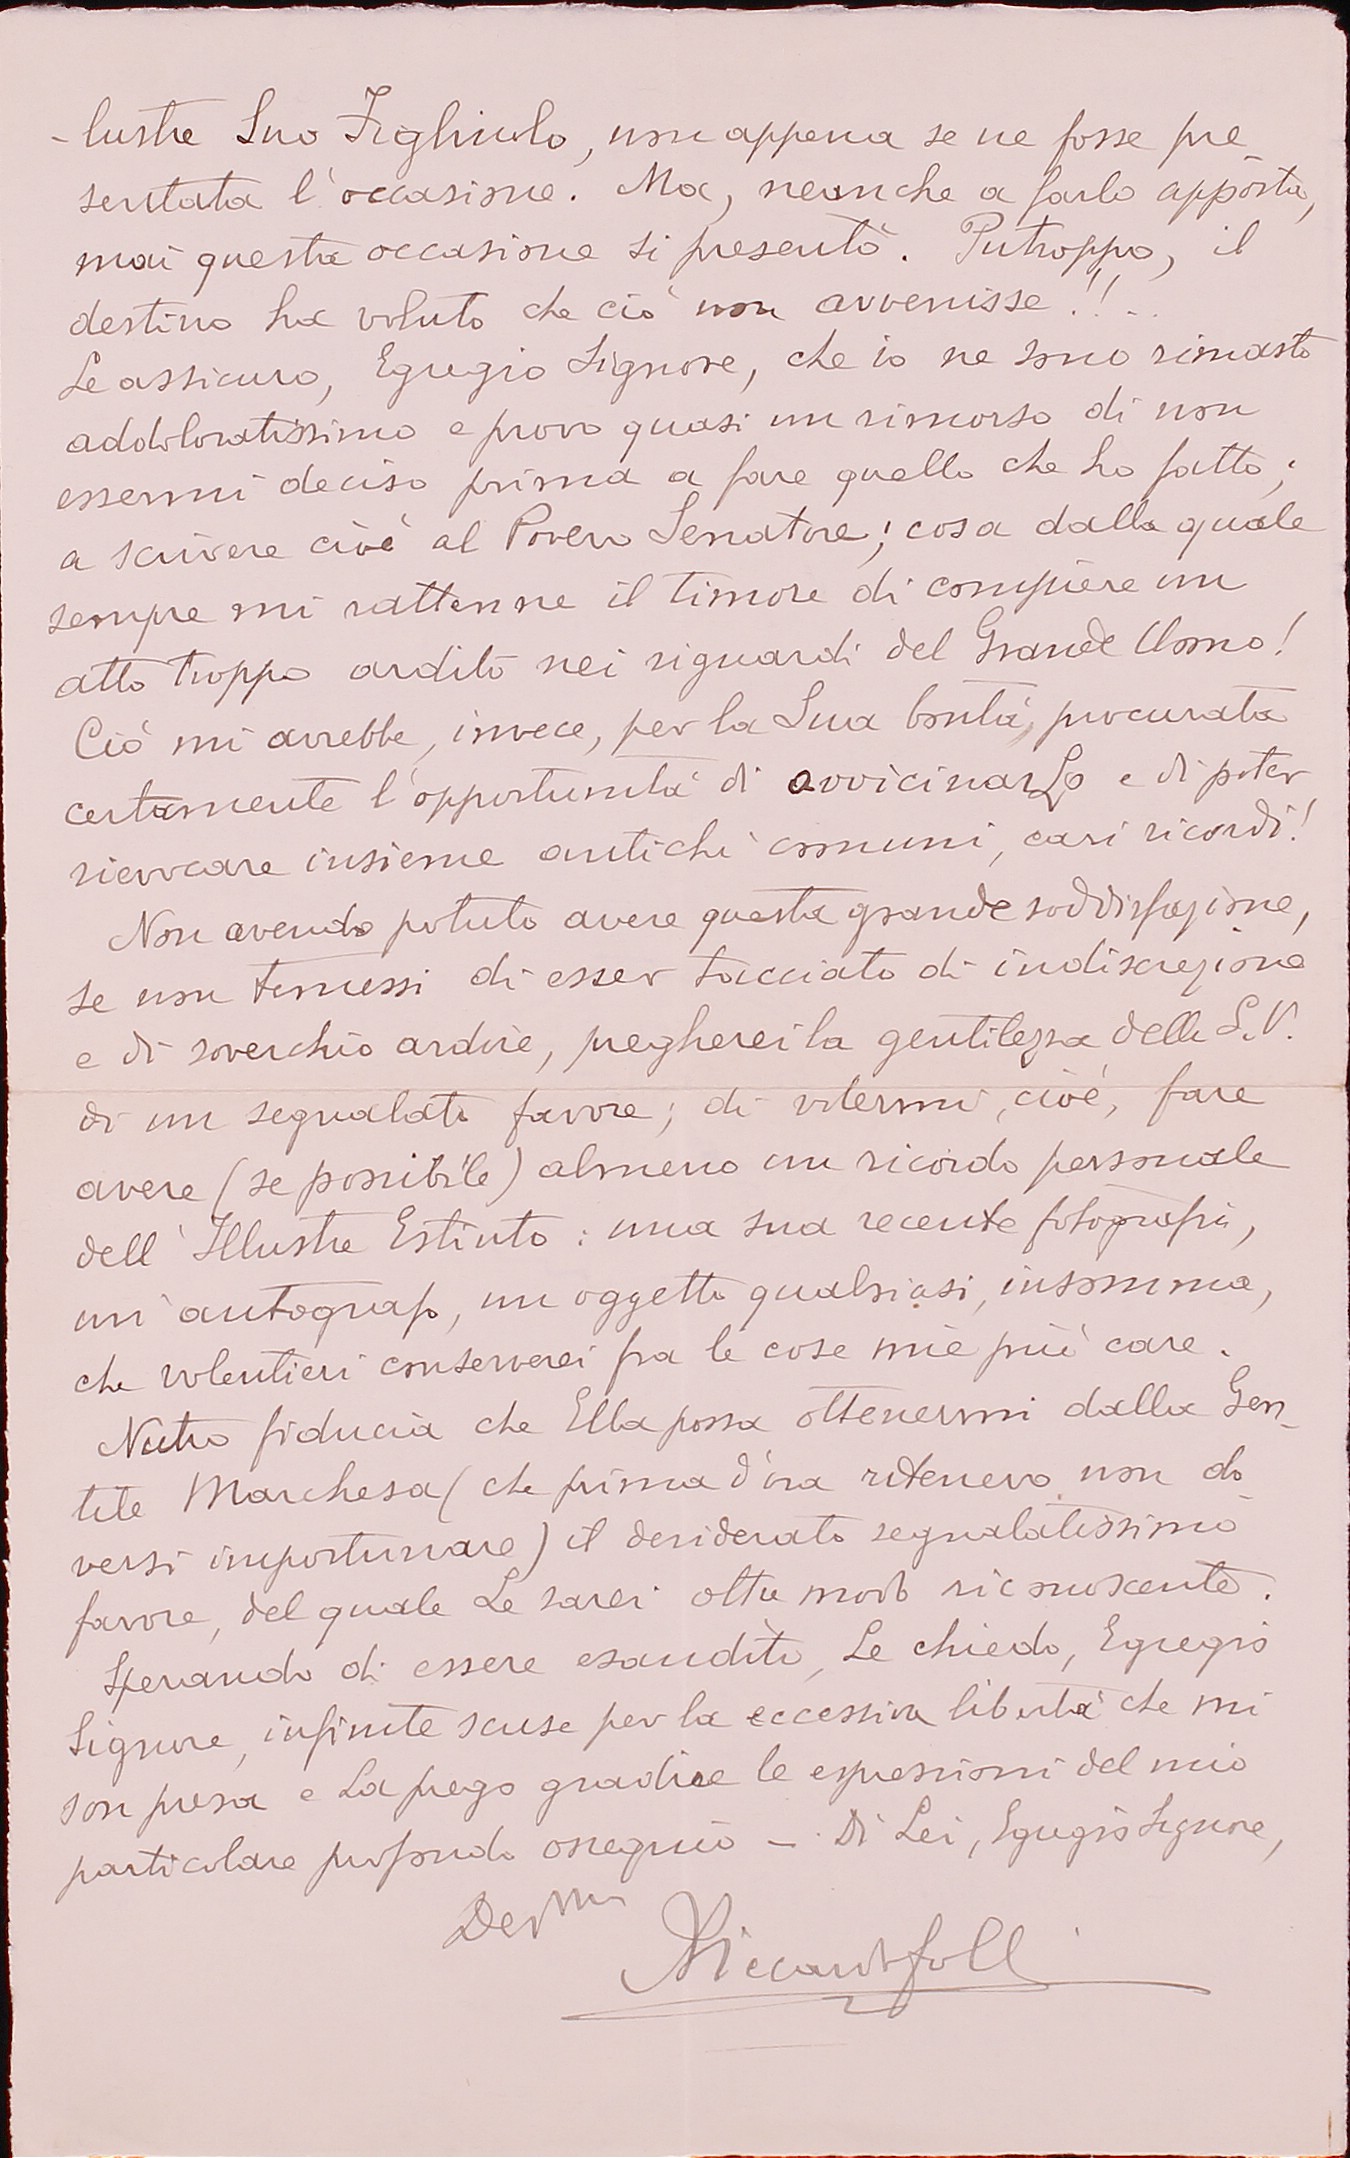 -lustre Suo Figliuolo, non appena se ne fosse pre
sentata l'occasione. Ma, neanche a farlo apposta,
mai questa occasione si presentò. Putroppo, il
destino ha voluto che ciò non avvenisse!!..
Le assicuro, Egregio Signore, che io ne sono rimasto
addoloratissimo e provo quasi un rimorso di non
essermi deciso prima a fare quello che ho fatto;
a scrivere cioè al Povero Senatore; cosa dalla quale
sempre mi rattenne il timore di compiere un
atto troppo ardito nei riguardi del Grande Uomo!
Ciò mi avrebbe, invece, per la Sua bontà, procurata
certamente l'opportunità di avvicinarLo e di poter
rievocare insieme antichi comuni, cari ricordi!
Non avendo potuto avere questa grande soddisfazione,
se non temessi di esser tacciato di indiscrezione
e di soverchio ardire, pregherei la gentilezza della S.V.
di un segnalato favore; di volermi, cioè, fare
avere (se possibile) almeno un ricordo personale
dell'Illustre Estinto: una sua recente fotografia,
un'autografo, un oggetto qualsiasi, insomma,
che volentieri conserverei fra le cose mie più care.
Nutro fiducia che Ella possa ottenermi dalla Gen-
tile Marchesa (che prima d'ora ritenevo non do
versi importunare) il desiderato segnalatissimo
favore, del quale Le sarei oltre modo riconoscente.
Sperando di essere esaudito, Le chiedo, Egregio
Signore, infinite scuse per la eccessiva libertà che mi
son presa e La prego gradire le espressioni del mio
particolare profondo ossequio - Di Lei, Egregio Signore,
Dev.mo
Riccardo Foll